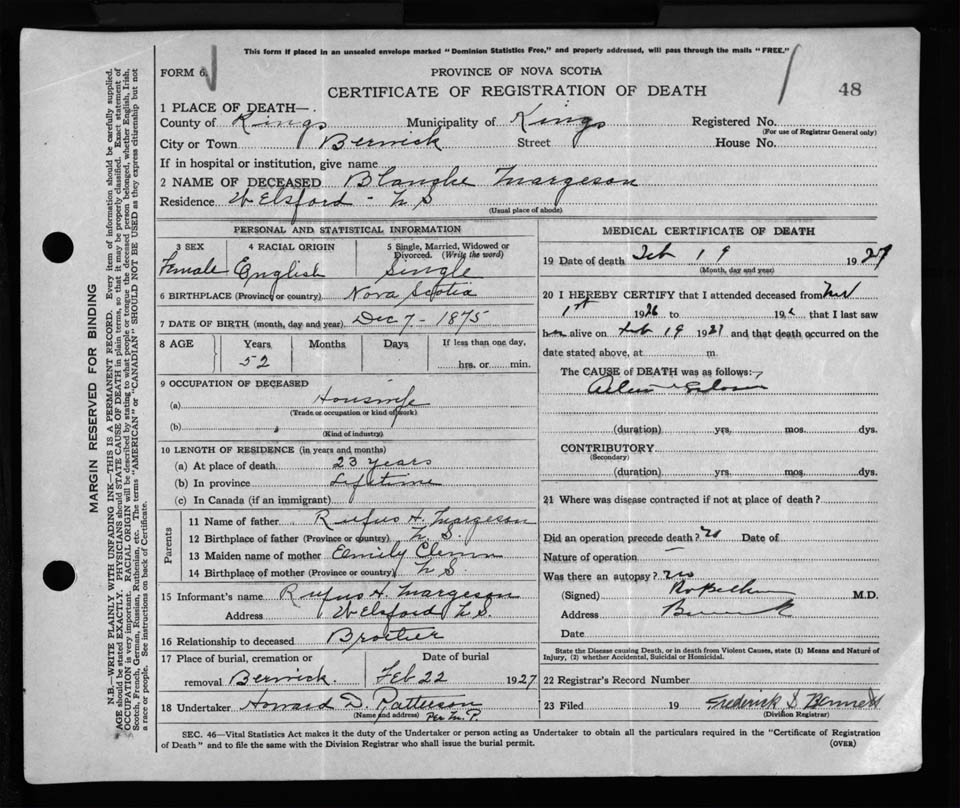 This form if placed in an unsealed envelope marked "Dominion Statistics Free," and properly addressed, will pass through the mails "FREE."
FORM 6.
PROVINCE OF NOVA SCOTIA
CERTIFICATE OF REGISTRATION OF DEATH
48
1 PLACE OF DEATH—
County of Kings Municipality of Kings Registered No.
(For use of Registrar General only)
City or Town Berwick Street House No.
If in hospital or institution, give name
2 NAME OF DECEASED Blanche Margeson
Residence Welsford - N S
(Usual place of abode)
PERSONAL AND STATISTICAL INFORMATION
3 SEX 4 RACIAL ORIGIN 5 Single, Married, Widowed or Divorced. (Write the word)
Female English Single
6 BIRTHPLACE (Province or country) Nova Scotia
7 DATE OF BIRTH (month, day and year) Dec 7 - 1875
8 AGE Years Months Days If less than one day,
52 hrs. or min.
9 OCCUPATION OF DECEASED
(a) Housewife
(Trade or occupation or kind of work)
(b)
(Kind of industry)
10 LENGTH OF RESIDENCE (in years and months)
(a) At place of death 23 years
(b) In province Lifetime
(c) In Canada (if an immigrant)
Parents
11 Name of father Rufus H. Margeson
12 Birthplace of father (Province or country) N. S.
13 Maiden name of mother Emily
14 Birthplace of mother (Province or country) N. S.
15 Informant's name Rufus H. Margeson
Address Welsford N. S.
16 Relationship to deceased Brother
17 Place of burial, cremation or Date of burial
removal Berwick. Feb 22 1927
18 Undertaker Howard D. Patterson
(Name and address) Per M. P.
MEDICAL CERTIFICATE OF DEATH
19 Date of death Feb 19 1927
(Month, day and year)
20 I HEREBY CERTIFY that I attended deceased from Nov
1st 1926 to 192 that I last saw
her alive on Feb 19 1927 and that death occurred on the
date stated above, at m.
The CAUSE of DEATH was as follows:
(duration) yrs. mos. dys.
CONTRIBUTORY
(Secondary)
(duration) yrs. mos. dys.
21 Where was disease contracted if not at place of death?
Did an operation precede death? no Date of
Nature of operation
Was there an autopsy? no
(Signed) M.D.
Address Berwick
Date
State the Disease causing Death, or in death from Violent Causes, state (1) Means and Nature of Injury, (2) whether Accidental, Suicidal or Homicidal.
22 Registrar's Record Number
23 Filed 19 Frederick S Bennett
(Division Registrar)
SEC. 46—Vital Statistics Act makes it the duty of the Undertaker or person acting as Undertaker to obtain all the particulars required in the "Certificate of Registration
of Death" and to file the same with the Division Registrar who shall issue the burial permit.
(OVER)
MARGIN RESERVED FOR BINDING
N.B.—WRITE PLAINLY WITH UNFADING INK—THIS IS A PERMANENT RECORD. Every item of information should be carefully supplied.
AGE should be stated EXACTLY. PHYSICIANS should STATE CAUSE OF DEATH in plain terms, so that it may be properly classified. Exact statement of
OCCUPATION is very important. RACIAL ORIGIN will be described by stating to what people or tongue the deceased person belonged, whether English, Irish,
Scotch, French, German, Russian, Ruthenian, etc. The terms "AMERICAN" or "CANADIAN" SHOULD NOT BE USED as they express citizenship but not
a race or people. See instructions on back of Certificate.